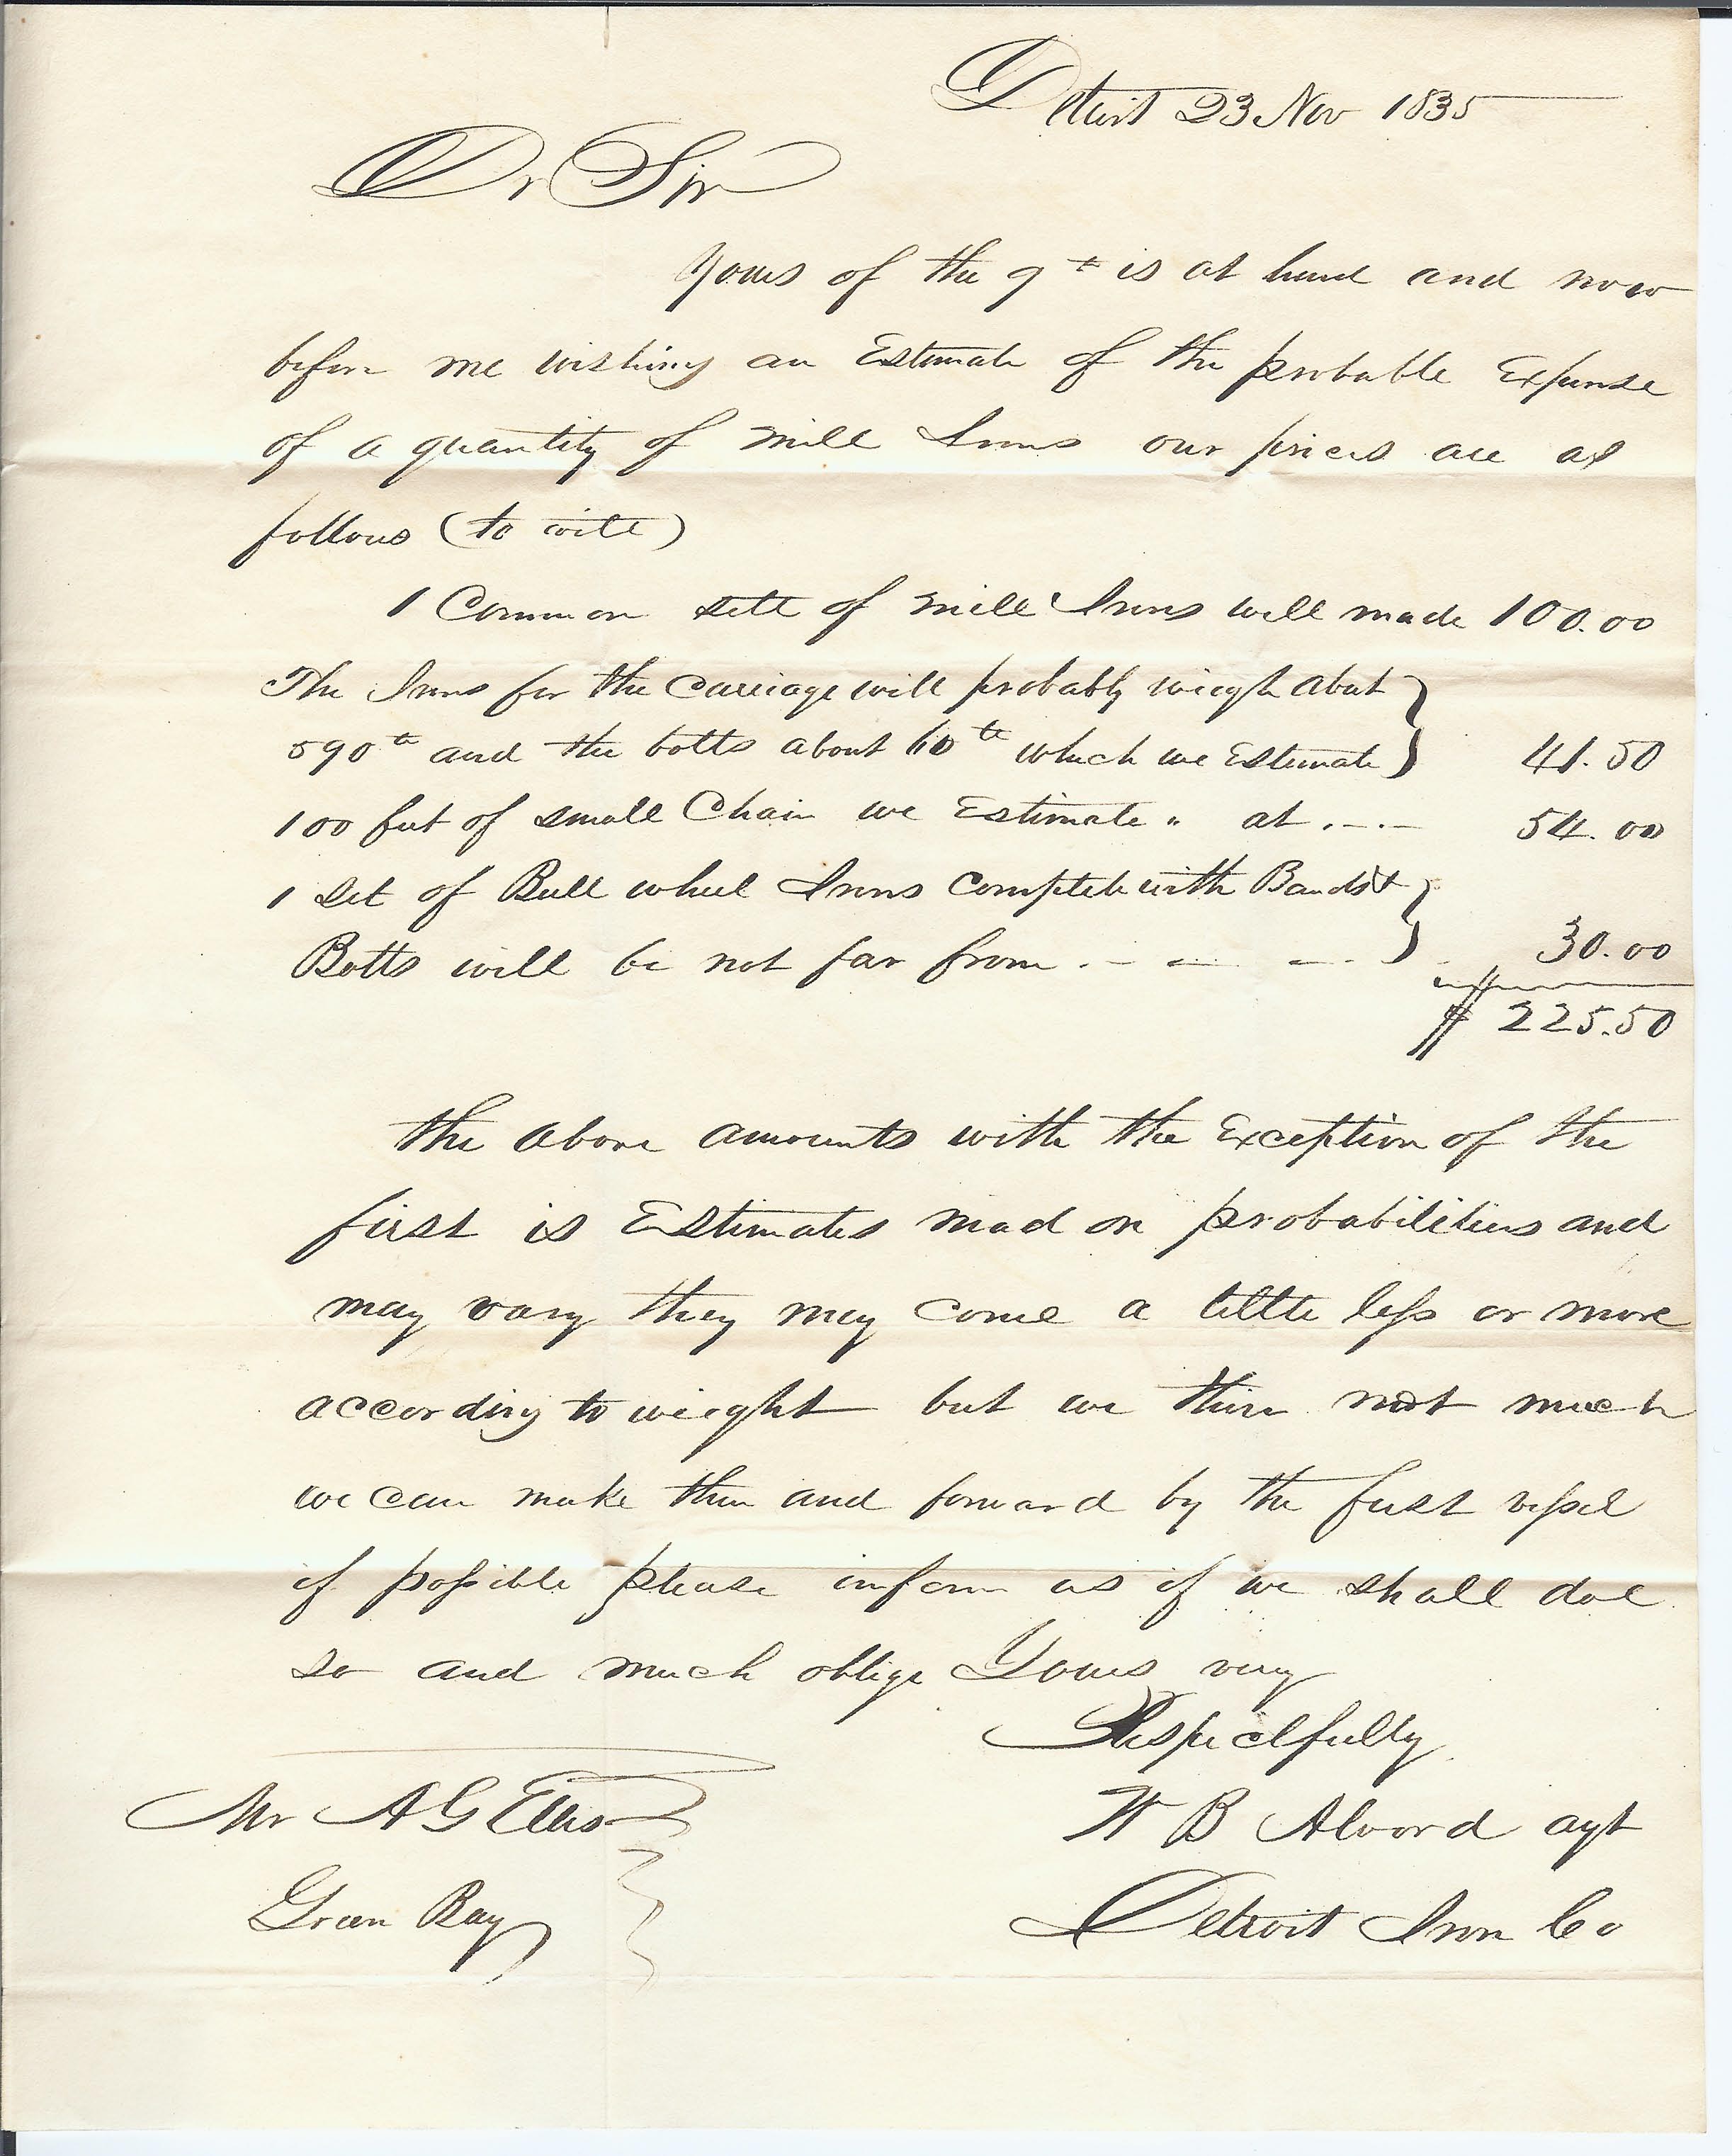 Detroit 23 Nov 1835
Dr Sir
Yours of the 9th is at hand and now
before me wishing an Estimate of the probable Expense
of a quantity of mill Irons our prices are as
follows (to witt)
1 Common sett of mill Irons well made 100.00
The Irons for the Carriage will probably wiegh about
590 lb and the botts about 60 lb which we Estimate } 41.50
100 feet of small Chain we Estimate " at .-.- 54.00
1 Set of Bull wheel Irons Complete with Bands &
Botts will be not far from . - - - . } 30.00
$ 225.50
the above amounts with the Exception of the
first is Estimates mad on probabilities and
may vary they may come a little less or more
according to wieght but we think not much
we can make them and forward by the first vessel
if possible please inform us if we shall doe
so and much oblige Yours very
Respectfully
W B Alvord agt
Detroit Iron Co
Mr A G Ellis
Green Bay